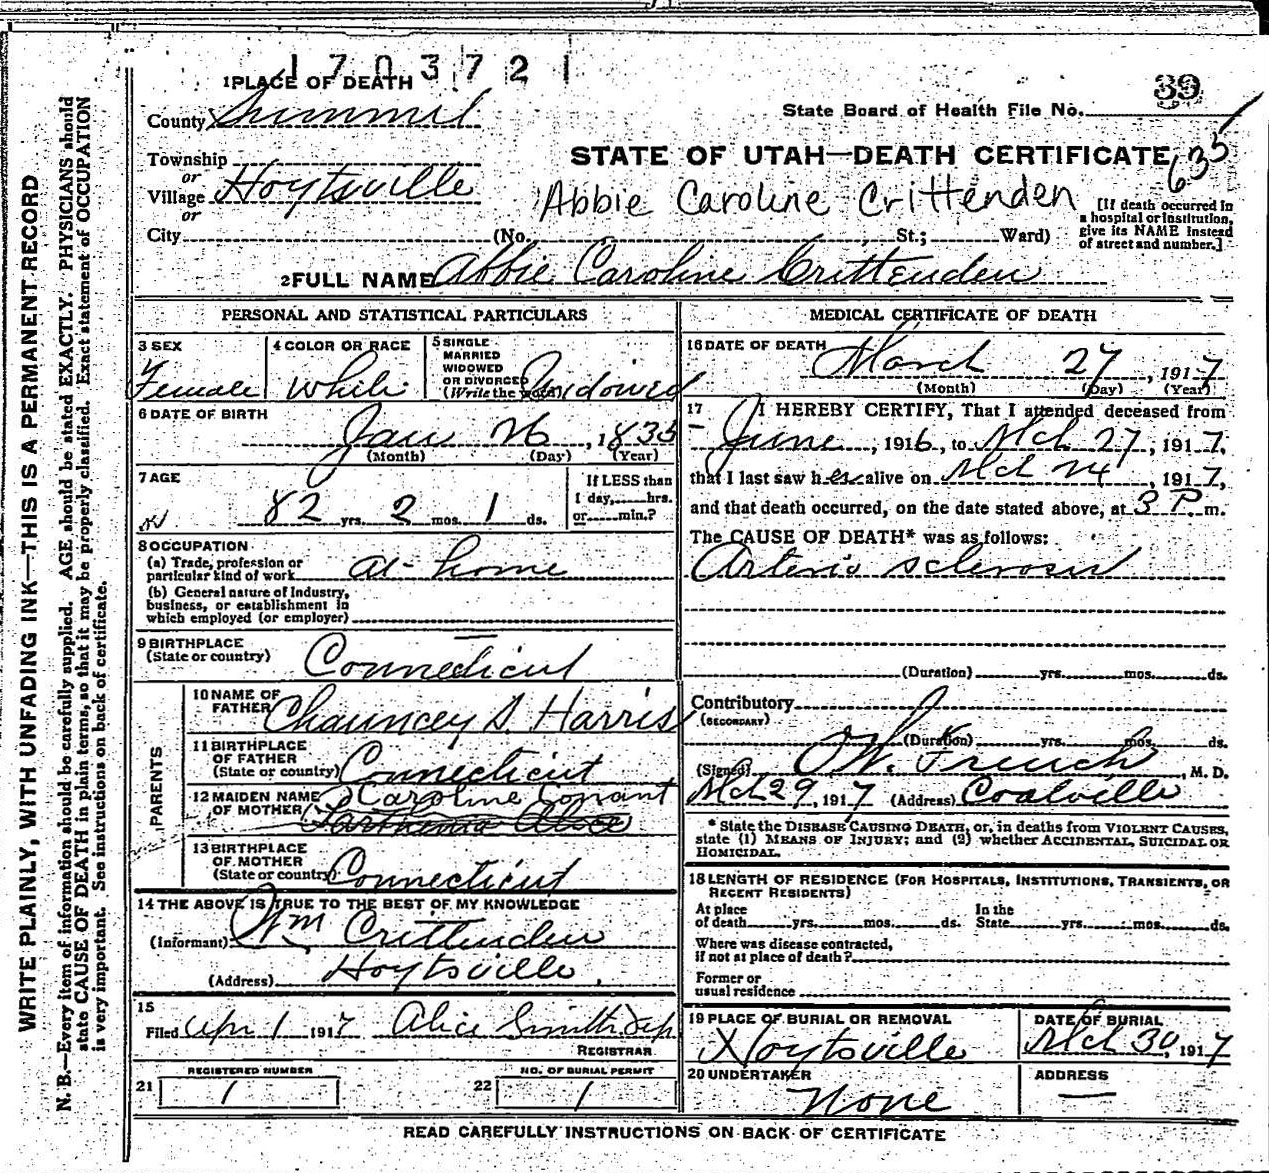 1703721
1 PLACE OF DEATH
39
State Board of Health File No.
County Summit
STATE OF UTAH—DEATH CERTIFICATE
635
Township
or
Village Hoytsville
or
Abbie Caroline Crittenden
[If death occurred in a hospital or institution, give its NAME instead of street and number.]
City (No. St.; Ward)
2 FULL NAME Abbie Caroline Crittenden
PERSONAL AND STATISTICAL PARTICULARS
3 SEX Female
4 COLOR OR RACE White
5 SINGLE MARRIED WIDOWED OR DIVORCED (Write the word) Widowed
6 DATE OF BIRTH
Jan 26, 1835
(Month) (Day) (Year)
7 AGE
82 yrs. 2 mos. 1 ds.
If LESS than 1 day, hrs. or min.?
8 OCCUPATION
(a) Trade, profession or particular kind of work at home
(b) General nature of Industry, business, or establishment in which employed (or employer)
9 BIRTHPLACE
(State or country) Connecticut
PARENTS
10 NAME OF FATHER Chauncey S. Harris
11 BIRTHPLACE OF FATHER (State or country) Connecticut
12 MAIDEN NAME OF MOTHER Caroline Conant
Parthenia Alice
13 BIRTHPLACE OF MOTHER (State or country) Connecticut
14 THE ABOVE IS TRUE TO THE BEST OF MY KNOWLEDGE
(Informant) Wm Crittenden
(Address) Hoytsville
15
Filed Apr 1 1917 Alice Smith Dep
REGISTRAR
21 REGISTERED NUMBER 1
22 NO. OF BURIAL PERMIT 1
MEDICAL CERTIFICATE OF DEATH
16 DATE OF DEATH March 27, 1917
(Month) (Day) (Year)
17 I HEREBY CERTIFY, That I attended deceased from
June, 1916, to Mch 27, 1917,
that I last saw her alive on Mch 24, 1917,
and that death occurred, on the date stated above, at 3 P. m.
The CAUSE OF DEATH* was as follows:
Arterio sclerosis
(Duration) yrs. mos. ds.
Contributory
(SECONDARY)
(Duration) yrs. mos. ds.
(Signed) O W. French, M. D.
Mch 29, 1917 (Address) Coalville
* State the DISEASE CAUSING DEATH, or, in deaths from VIOLENT CAUSES, state (1) MEANS OF INJURY; and (2) whether ACCIDENTAL, SUICIDAL OR HOMICIDAL.
18 LENGTH OF RESIDENCE (FOR HOSPITALS, INSTITUTIONS, TRANSIENTS, OR RECENT RESIDENTS)
At place of death yrs. mos. ds. In the State yrs. mos. ds.
Where was disease contracted, if not at place of death?
Former or usual residence
19 PLACE OF BURIAL OR REMOVAL Hoytsville
DATE OF BURIAL Mch 30, 1917
20 UNDERTAKER None
ADDRESS —
READ CAREFULLY INSTRUCTIONS ON BACK OF CERTIFICATE
WRITE PLAINLY, WITH UNFADING INK—THIS IS A PERMANENT RECORD
N. B.—Every item of information should be carefully supplied. AGE should be stated EXACTLY. PHYSICIANS should
state CAUSE OF DEATH in plain terms, so that it may be properly classified. Exact statement of OCCUPATION
is very important. See instructions on back of certificate.